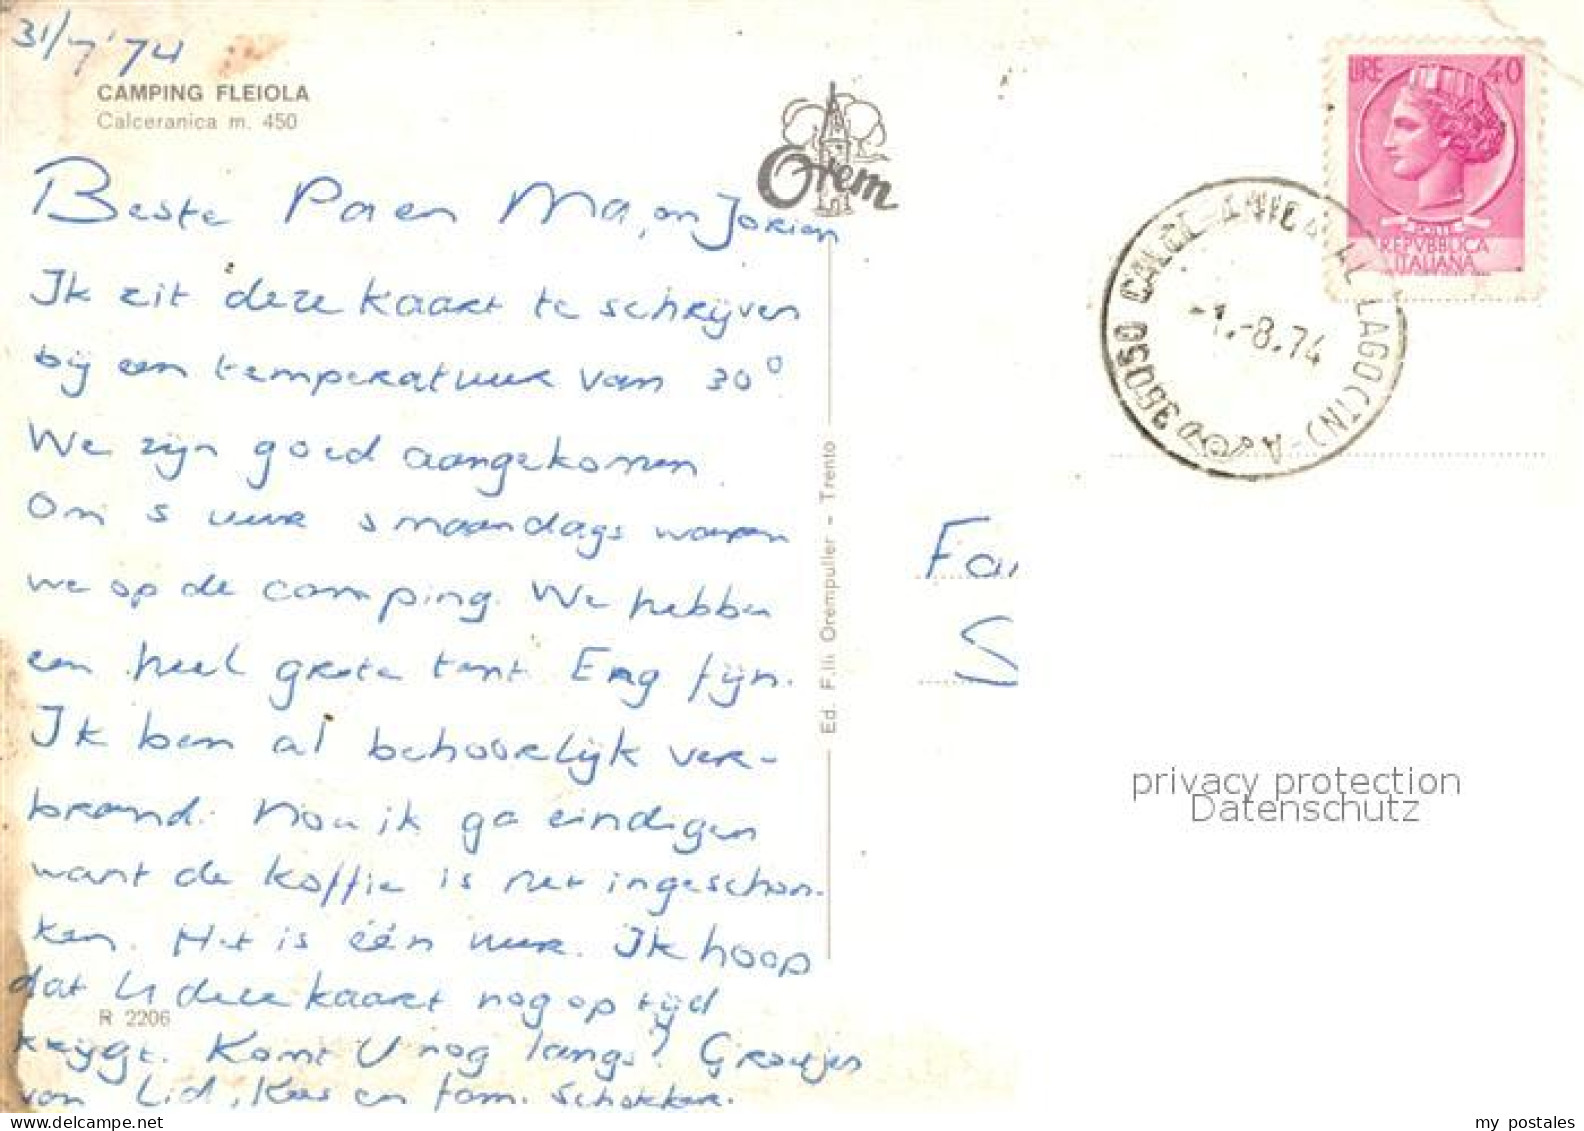 31/7'74
CAMPING FLEIOLA
Calceranica m. 450
Orem
Beste Pa en Ma, en Jorien
Ik zit deze kaart te schrijven
bij een temperatuur van 30°
We zijn goed aangekomen
Om 5 uur s maandags waren
we op de camping. We hebben
een heel grote tent. Erg fijn.
Ik ben al behoorlijk ver-
brand. Nou ik ga eindigen
want de koffie is net ingeschon-
ken. Het is één uur. Ik hoop
dat U deze kaart nog op tijd
R 2206
krijgt. Komt U nog langs? Groetjes
van Lid, Kees en fam. Schokker.
Ed. F.lli Orempuller - Trento
LIRE 40
POSTE
REPVBBLICA
ITALIANA
38050 CALCERANICA AL LAGO (TN)
-1.-8.74
Fa
S
privacy protection
Datenschutz
my postales